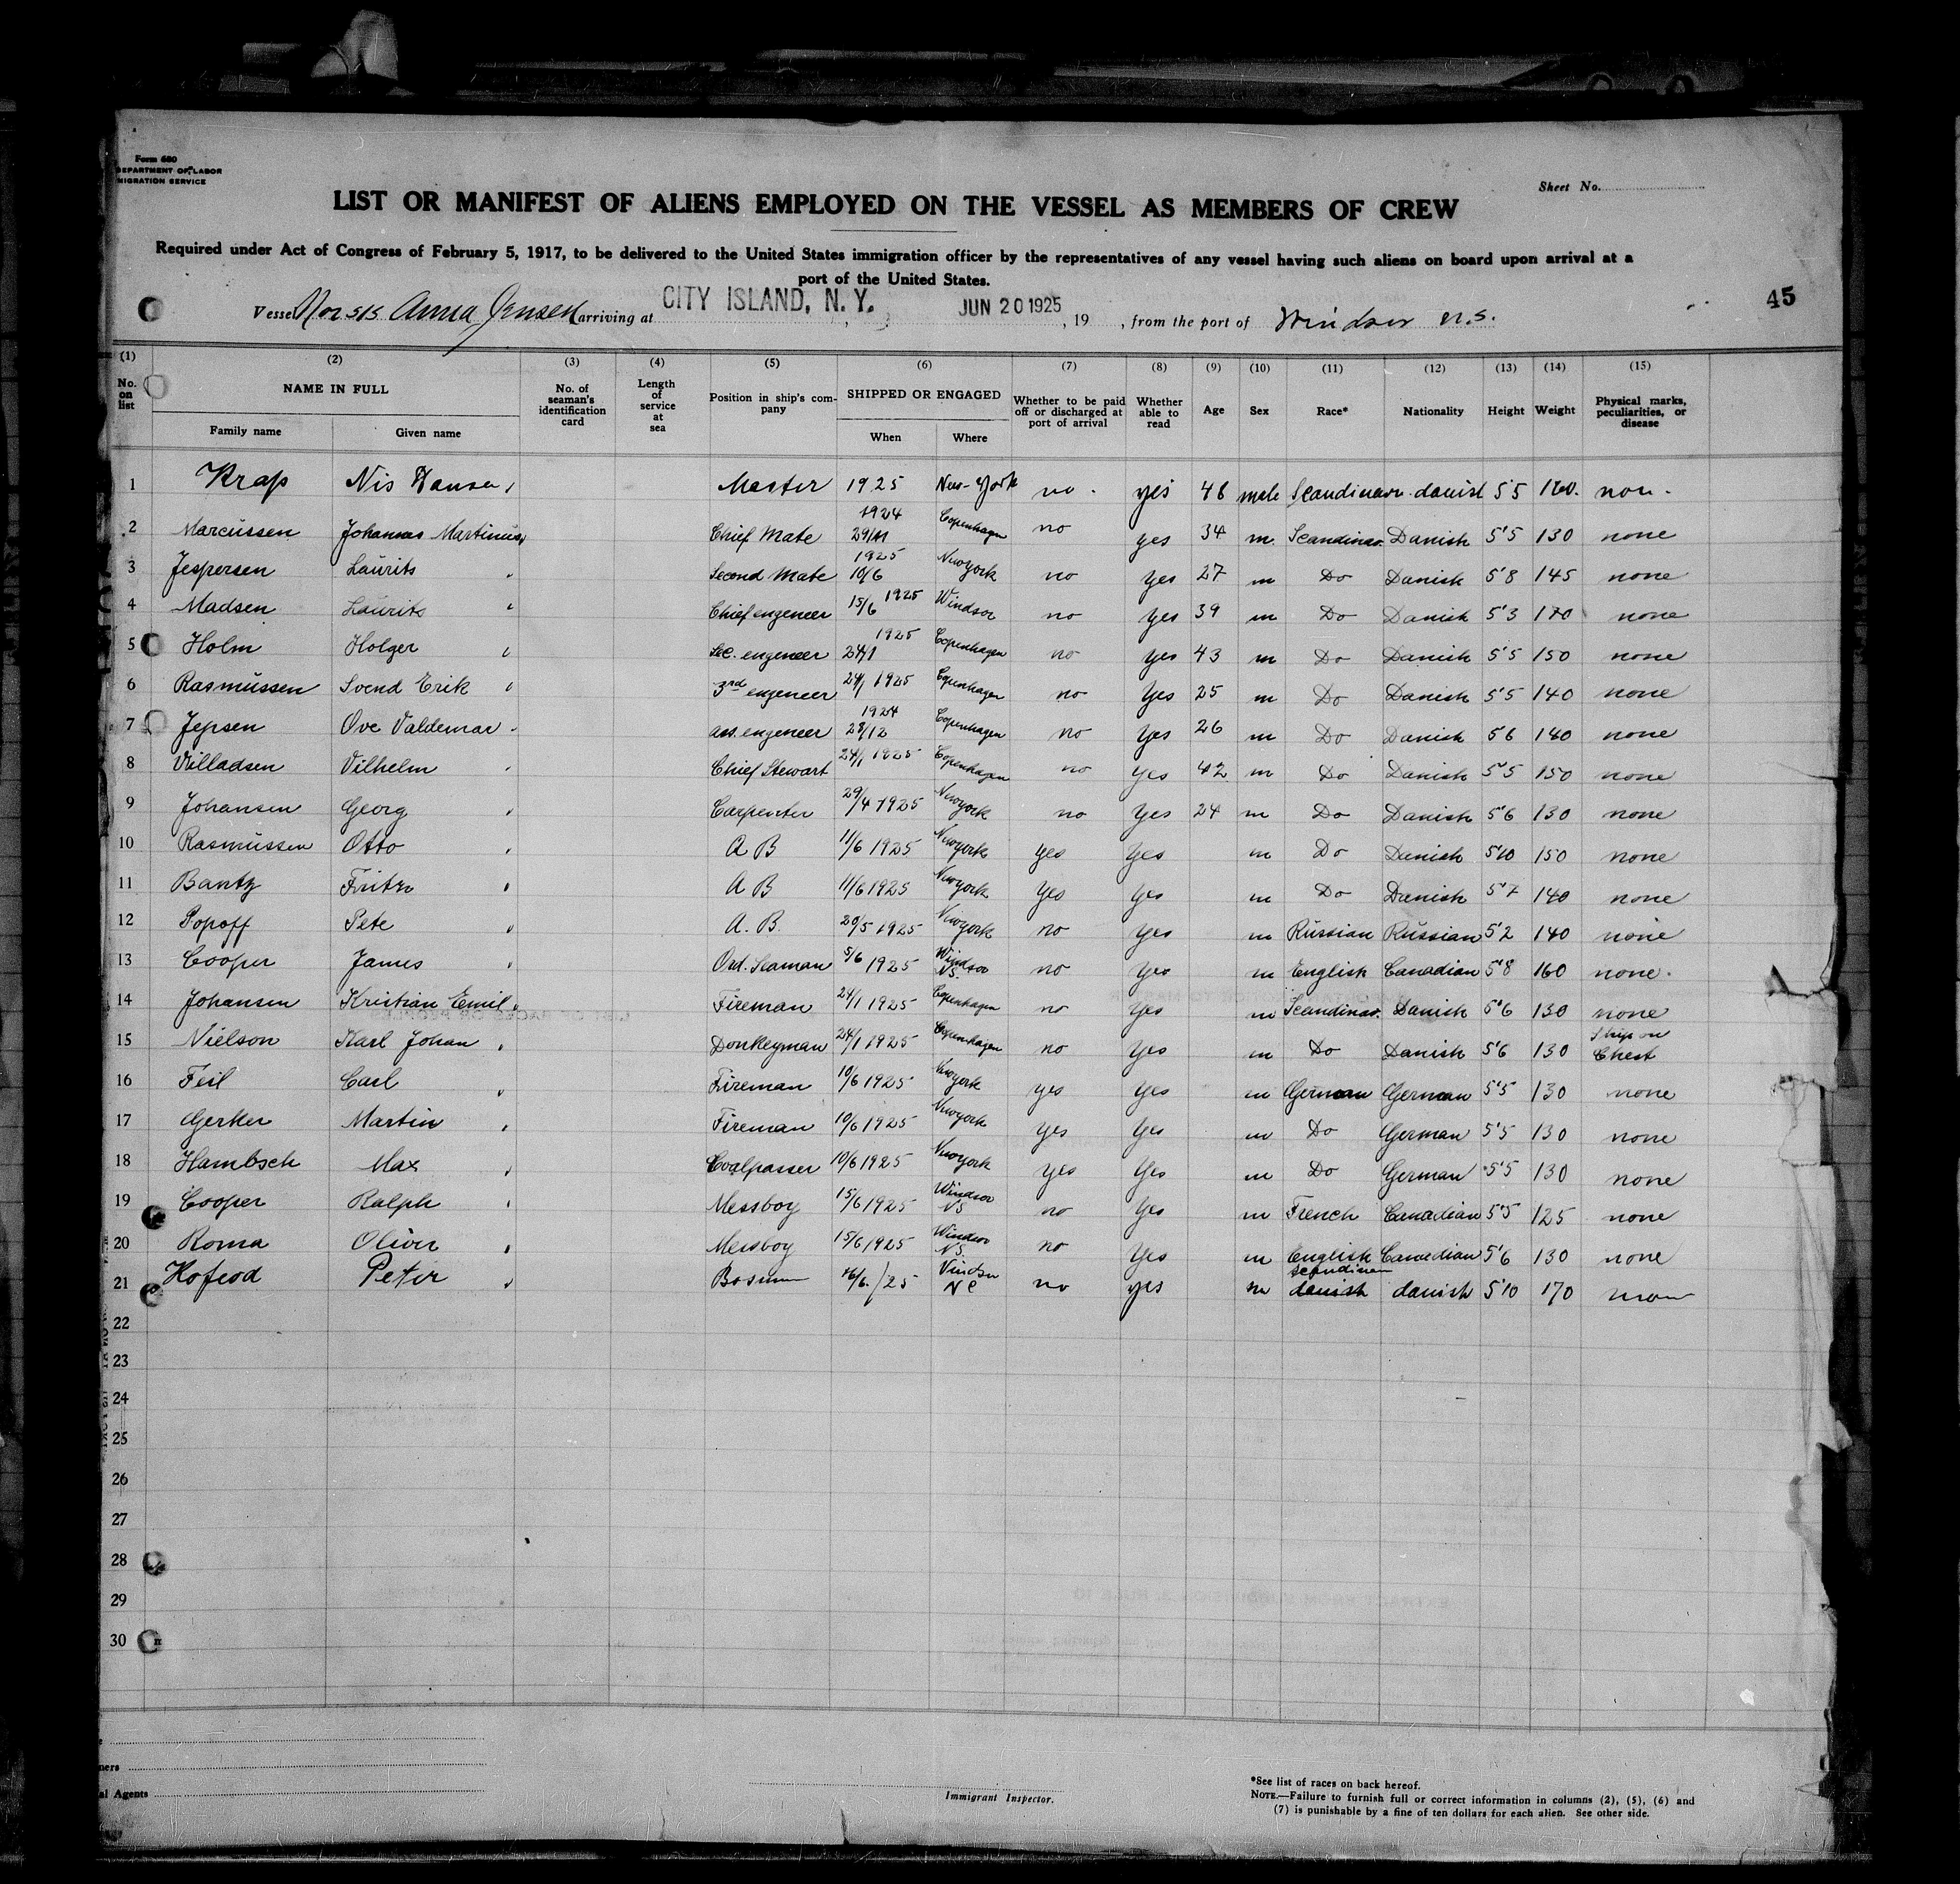 Form 680
DEPARTMENT OF LABOR
MIGRATION SERVICE
Sheet No.
LIST OR MANIFEST OF ALIENS EMPLOYED ON THE VESSEL AS MEMBERS OF CREW
Required under Act of Congress of February 5, 1917, to be delivered to the United States immigration officer by the representatives of any vessel having such aliens on board upon arrival at a
port of the United States.
45
Vessel Nor S/S Anna Jensen arriving at CITY ISLAND, N. Y. JUN 20 1925, 19 , from the port of Windsor N.S.
(1) (2) (3) (4) (5) (6) (7) (8) (9) (10) (11) (12) (13) (14) (15)
No. on list NAME IN FULL No. of seaman's identification card Length of service at sea Position in ship's company SHIPPED OR ENGAGED Whether to be paid off or discharged at port of arrival Whether able to read Age Sex Race* Nationality Height Weight Physical marks, peculiarities, or disease
Family name Given name When Where
1 Krap Nis Hansen Master 1925 New-York no. yes 46 male danish 5'5 160. non.
2 Marcussen Johannes Martinus Chief Mate 1924 Copenhagen no yes 34 m. Scandinav. Danish 5'5 130 none
3 Jespersen Laurits Second Mate 1925 10/6 Newyork no Yes 27 m Do Danish 5'8 145 none
4 Madsen Laurits Chief engeneer 15/6 1925 Windsor no yes 39 m Do Danish 5'3 170 none
5 Holm Holger Sec. engeneer 1925 24/1 Copenhagen no yes 43 m Do Danish 5'5 150 none
6 Rasmussen Svend Erik 3rd engeneer 24/1 1925 Copenhagen no Yes 25 m Do Danish 5'5 140 none
7 Jepsen Ove Valdemar ass. engeneer 1924 28/12 Copenhagen no Yes 26 m Do Danish 5'6 140 none
8 Villadsen Vilhelm Chief Stewart 24/1 1925 Copenhagen no Yes 42 m Do Danish 5'5 150 none
9 Johansen Georg Carpenter 29/4 1925 Newyork no Yes 24 m Do Danish 5'6 130 none
10 Rasmussen Otto A B 11/6 1925 Newyork yes Yes m Do Danish 5'10 150 none
11 Bantz Fritz A B 11/6 1925 Newyork Yes Yes m Do Danish 5'7 140 none
12 Popoff Pete A. B. 20/5 1925 Newyork no Yes m Russian Russian 5'2 140 none
13 Cooper James Ord. Seaman 5/6 1925 Windsor NS. no Yes m English Canadian 5'8 160 none.
14 Johansen Kristian Emil Fireman 24/1 1925 Copenhagen no Yes m Scandinav. Danish 5'6 130 none
15 Nielson Karl Johan Donkeyman 24/1 1925 Copenhagen no Yes m Do Danish 5'6 130 Ship on Chest
16 Feil Carl Fireman 10/6 1925 Newyork yes Yes m German German 5'5 130 none
17 Gerker Martin Fireman 10/6 1925 Newyork yes Yes m Do German 5'5 130 none
18 Hambsch Max Coalpasser 10/6 1925 Newyork yes Yes m Do German 5'5 130 none
19 Cooper Ralph Messboy 15/6 1925 Windsor NS no Yes m French Canadian 5'5 125 none
20 Roma Oliver Messboy 15/6 1925 Windsor NS. no Yes m English Canadian 5'6 130 none
21 Hofeod Peter Bosmun 16/6/25 no yes m danish danish 5'10 170
22
23
24
25
26
27
28
29
30
ners
al Agents
Immigrant Inspector.
*See list of races on back hereof.
NOTE.—Failure to furnish full or correct information in columns (2), (5), (6) and
(7) is punishable by a fine of ten dollars for each alien. See other side.